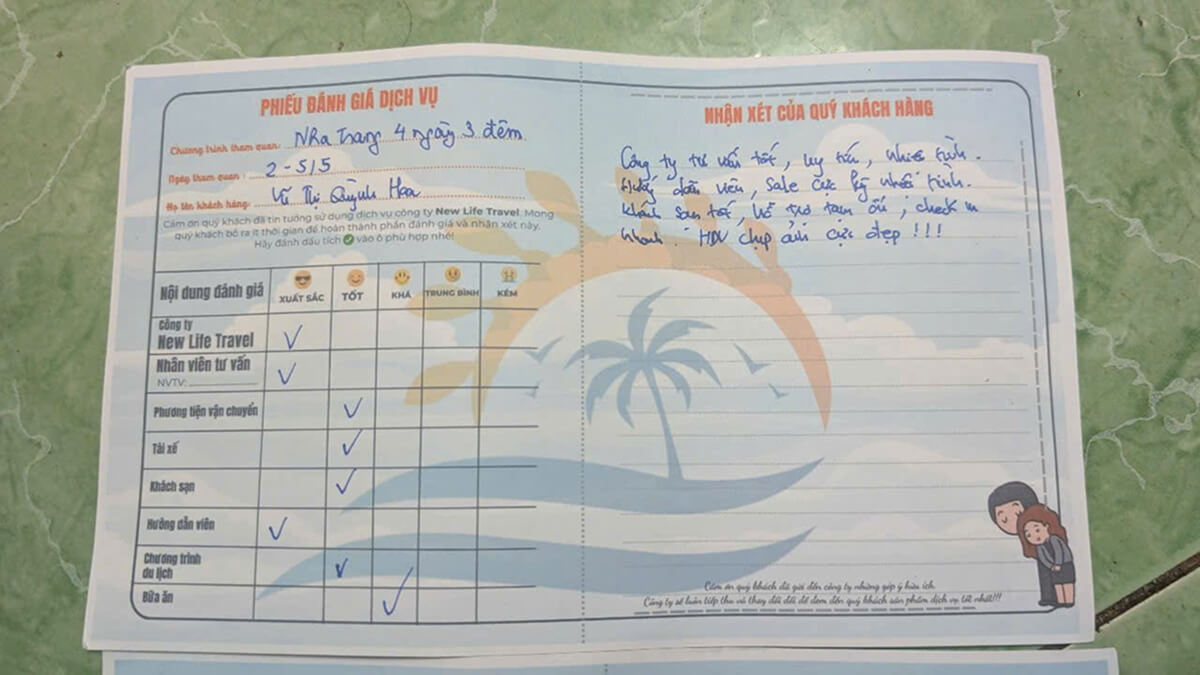 PHIẾU ĐÁNH GIÁ DỊCH VỤ
Chương trình tham quan: Nha Trang 4 ngày 3 đêm
Ngày tham quan: 2 - 5/5
Họ tên khách hàng: Vũ Thị Quỳnh Hoa
Cảm ơn quý khách đã tin tưởng sử dụng dịch vụ công ty New Life Travel. Mong
quý khách bỏ ra ít thời gian để hoàn thành phần đánh giá và nhận xét này.
Hãy đánh dấu tích vào ô phù hợp nhé!
Nội dung đánh giá XUẤT SẮC TỐT KHÁ TRUNG BÌNH KÉM
Công ty
New Life Travel
Nhân viên tư vấn
NVTV:
Phương tiện vận chuyển
Tài xế
Khách sạn
Hướng dẫn viên
Chương trình
du lịch
Bữa ăn
NHẬN XÉT CỦA QUÝ KHÁCH HÀNG
Công ty tư vấn tốt, uy tín, nhiệt tình.
Hướng dẫn viên, sale cực kỳ nhiệt tình.
Khách sạn tốt, hỗ trợ tạm ổn, check in
nhanh. HDV chụp ảnh cực đẹp !!!
Cảm ơn quý khách đã gửi đến công ty những góp ý hữu ích.
Công ty sẽ luôn tiếp thu và thay đổi để đem đến quý khách sản phẩm dịch vụ tốt nhất!!!